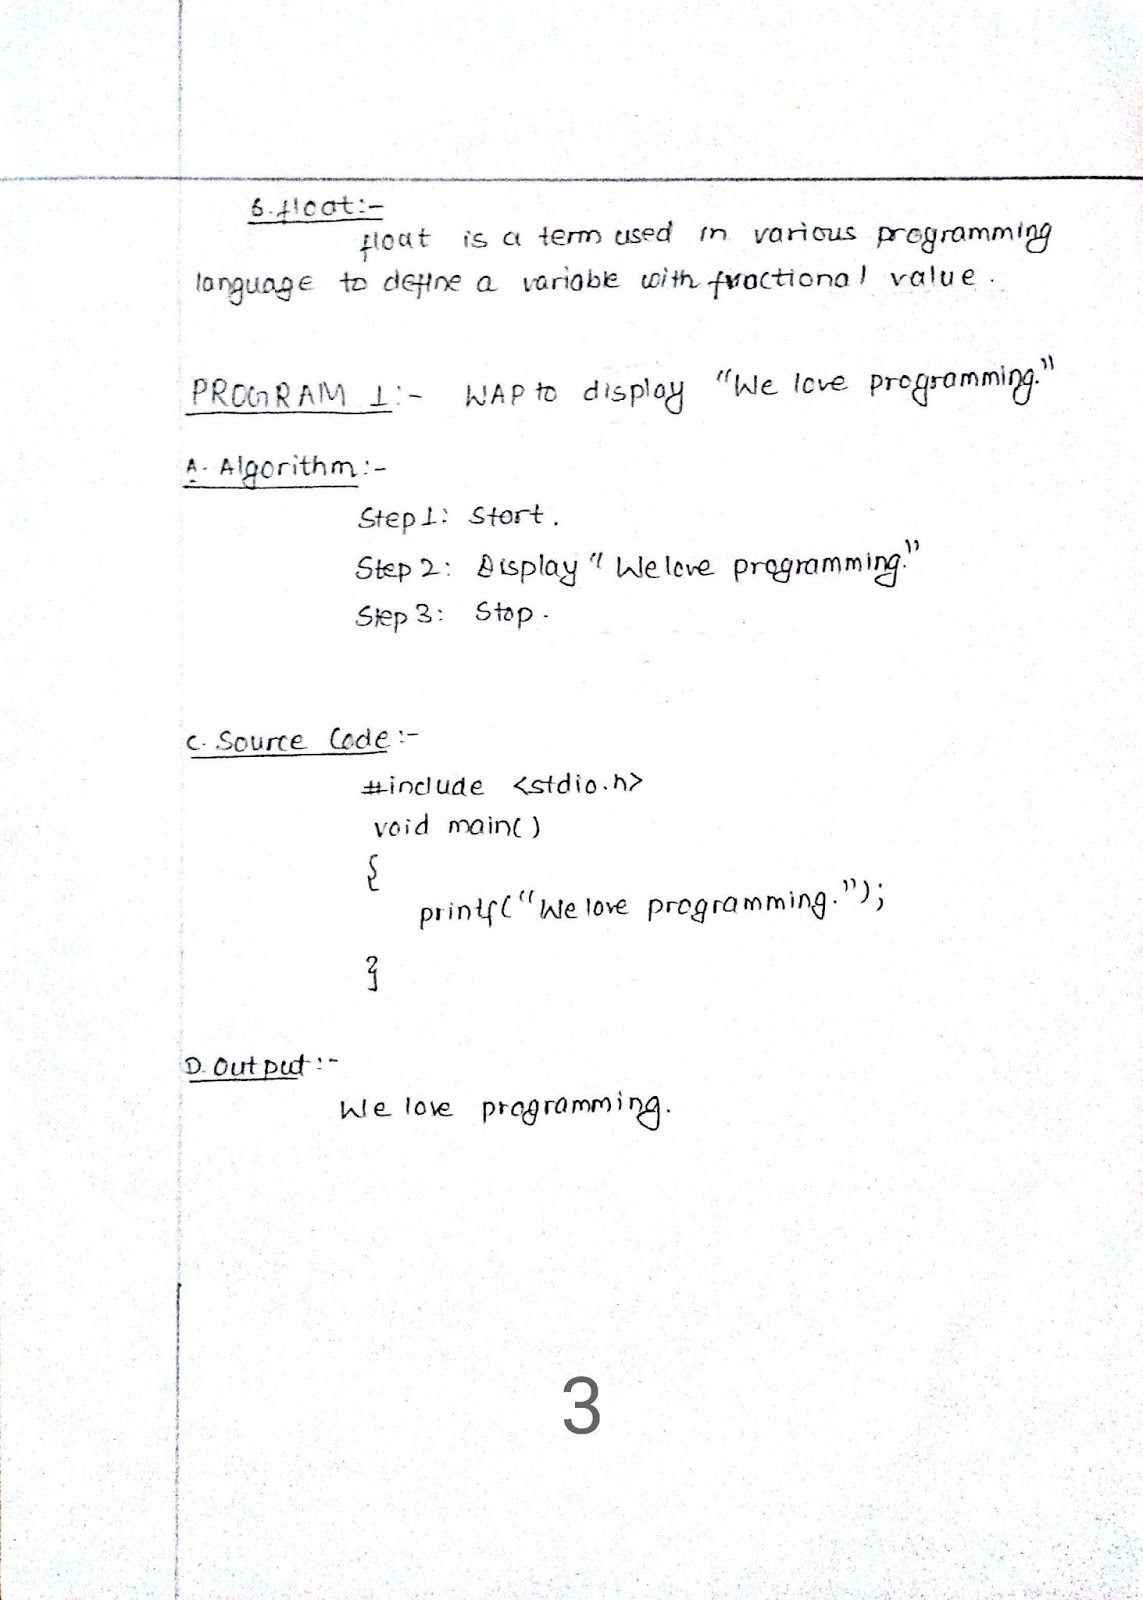 6. float:-
float is a term used in various programming
language to define a variable with fractional value.
PROGRAM 1:- WAP to display "We love programming."
A. Algorithm:-
Step 1: Start.
Step 2: Display "We love programming."
Step 3: Stop.
C. Source Code:-
#include <stdio.h>
void main()
{
printf("We love programming.");
}
D. Output:-
We love programming.
3